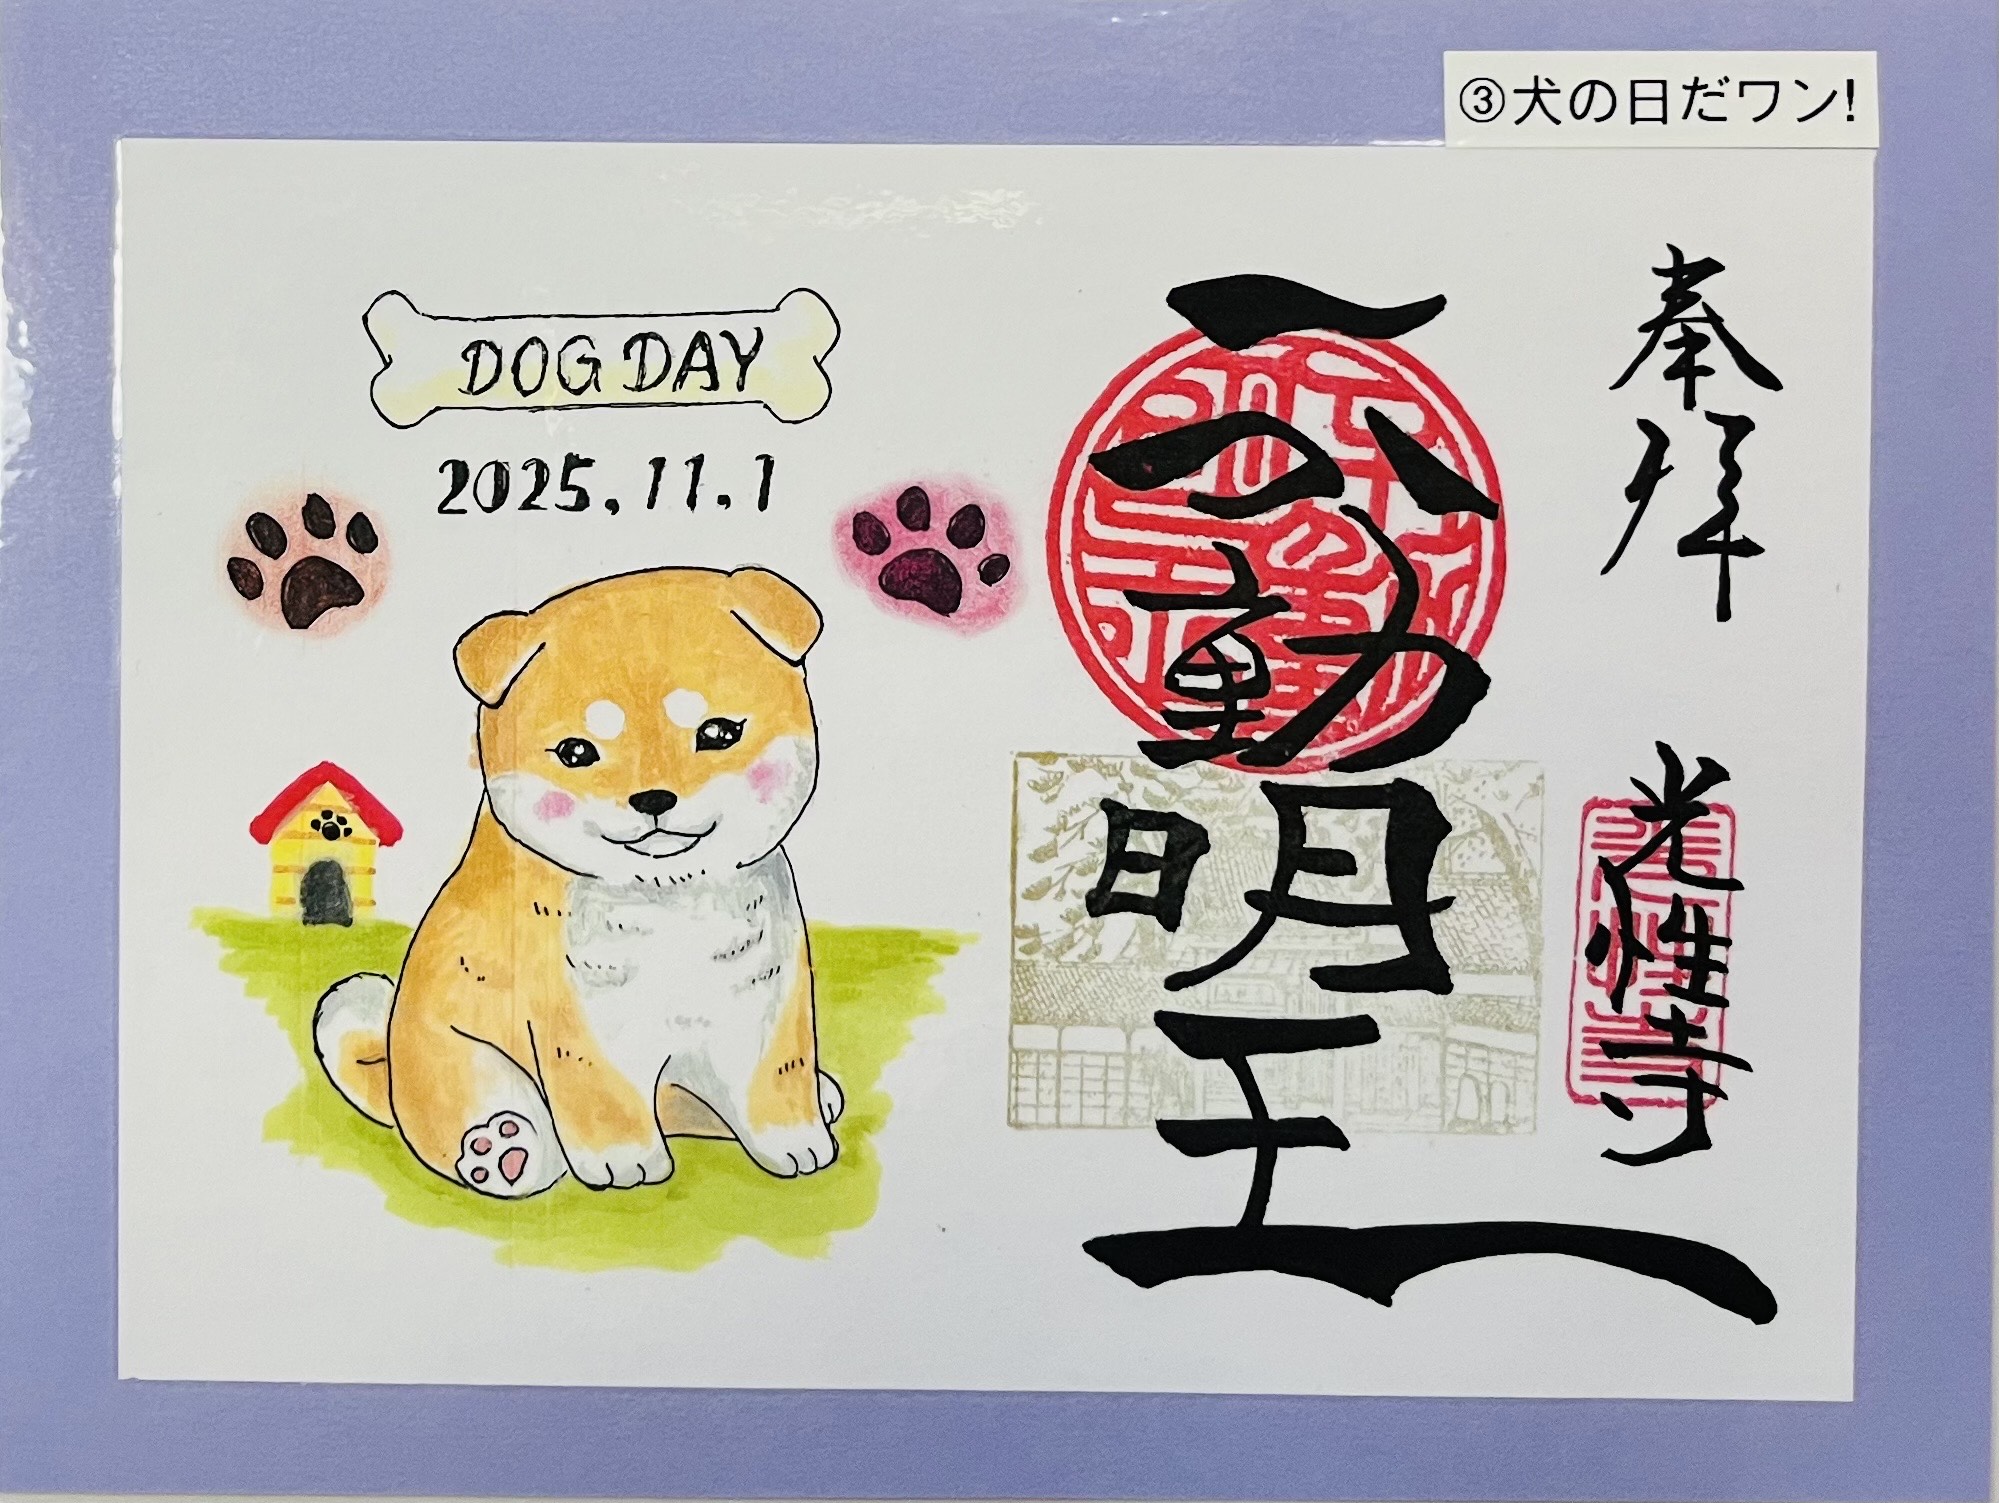 ③犬の日だワン!
奉拝
光性寺
不動明王
DOG DAY
2025.11.1